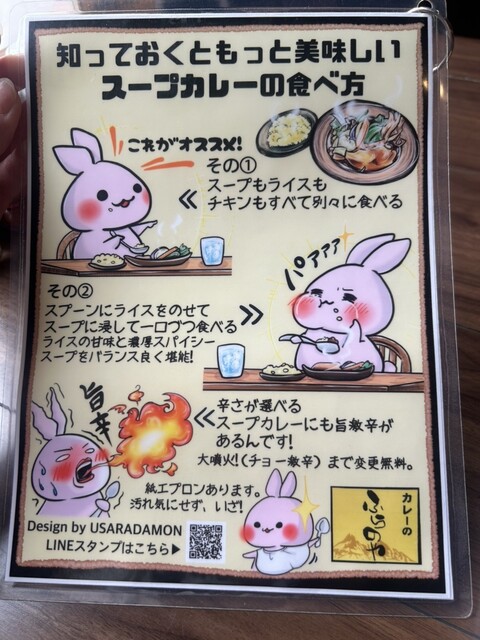 知っておくともっと美味しい
スープカレーの食べ方
これがオススメ!
その①
スープもライスも
チキンもすべて別々に食べる
パァァァ
その②
スプーンにライスをのせて
スープに浸して一口づつ食べる
ライスの甘味と濃厚スパイシー
スープをバランス良く堪能!
旨辛
辛さが選べる
スープカレーにも旨激辛が
あるんです!
大噴火!(チョー激辛)まで変更無料。
紙エプロンあります。
汚れ気にせず、いざ!
Design by USARADAMON
LINEスタンプはこちら▶
カレーの